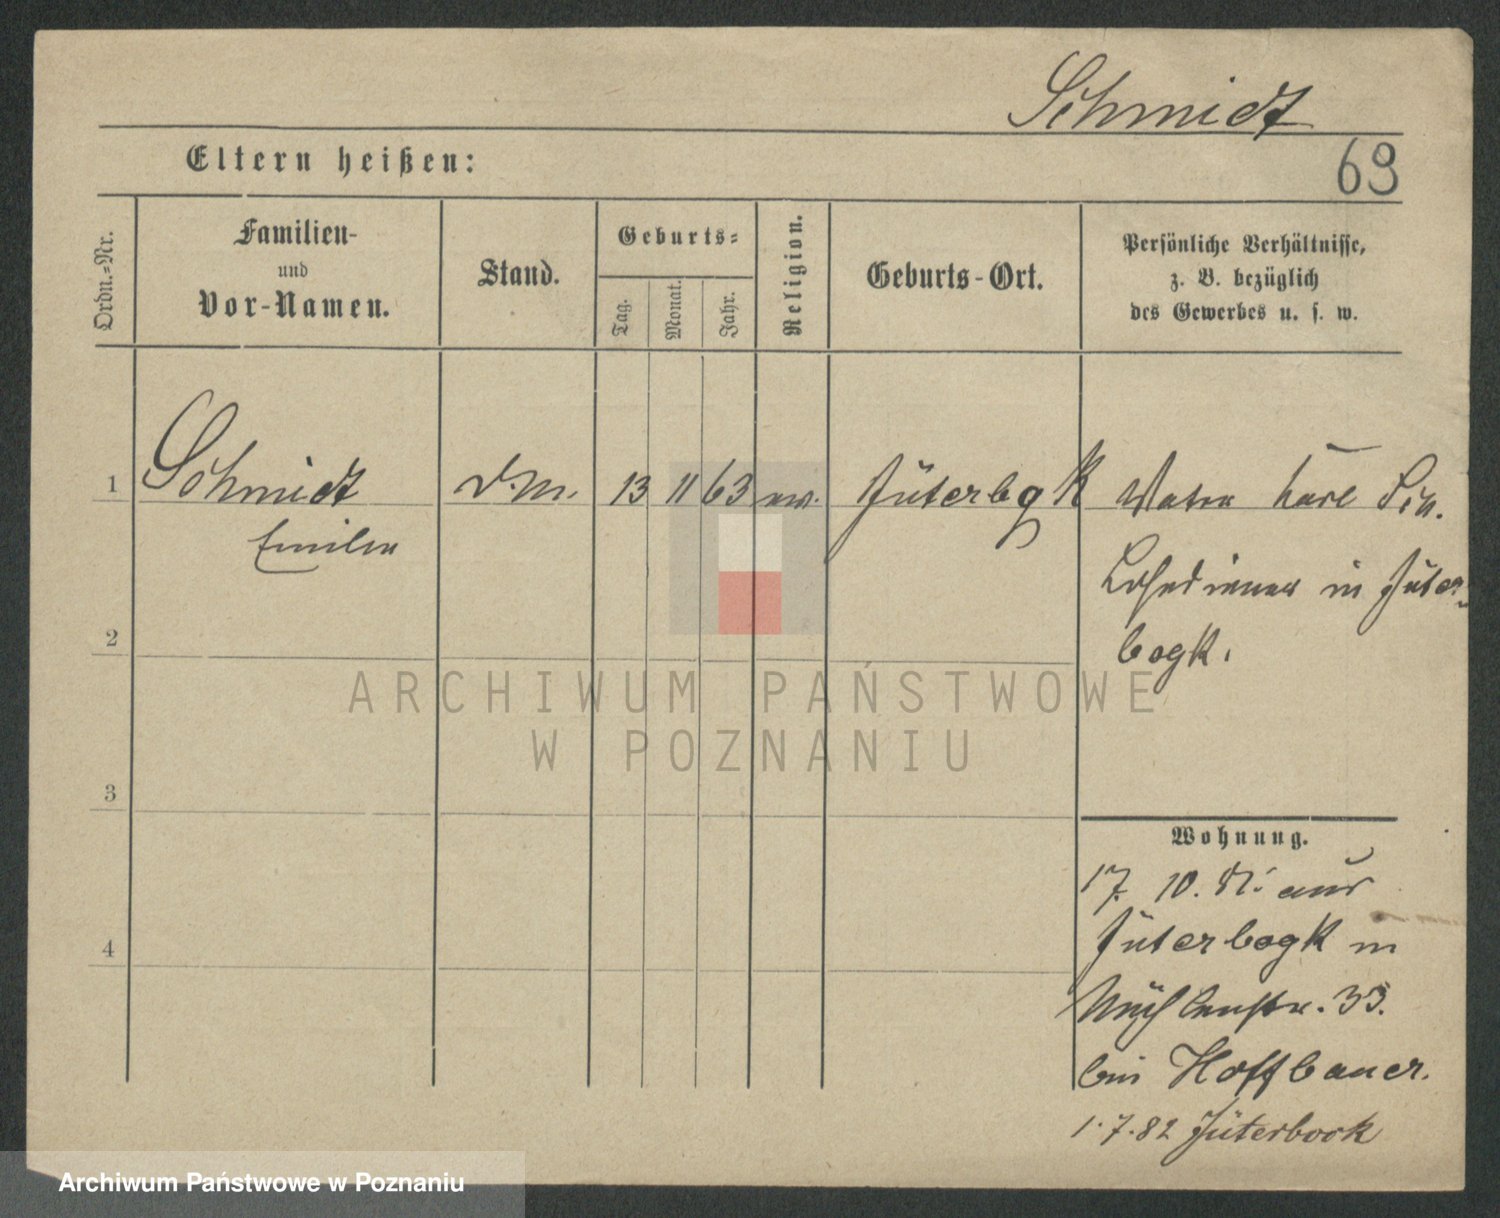 Schmidt
69
Eltern heißen:
Ordn.=Nr.
Familien-
und
Vor-Namen.
Stand.
Geburts=
Tag.
Monat.
Jahr.
Religion.
Geburts-Ort.
Persönliche Verhältnisse,
z. B. bezüglich
des Gewerbes u. s. w.
1 Schmidt d.m. 13 11 63 ev. Jüterbgk Vater Karl Sch.
Emilie
Lohndiener in Jüter-
bogk.
2
3
4
ARCHIWUM PAŃSTWOWE
W POZNANIU
Wohnung.
17. 10. 81. aus
Jüterbogk in
Mühlenstr. 33.
bei Hoffbauer.
1.7.82 Jüterbock
Archiwum Państwowe w Poznaniu